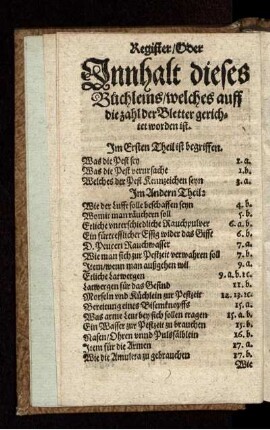 Register/Oder
Innhalt dieses
Büchleins/welches auff
die zahl der Bletter gerich-
tet worden ist.
Im Ersten Theil ist begriffen.
Was die Pest sey 1.a.
Was die Pest verursacht 1.b.
Welches der Pest Kennzeichen seyn 3.a.
Im Andern Theil:
Wie der Lufft solle beschaffen seyn 4.b.
Womit man räuchern soll 5.b.
Etliche unterschiedliche Rauchpulver 6.a.b.
Ein fürtrefflicher Essig wider das Gifft 6.b.
D. Peucern Rauchwasser 7.a.
Wie man sich zur Pestzeit verwahren soll 7.b.
Item/wenn man außgehen wil 9.a.
Etliche Latwergen 9.a.b.1c.
Latwergen für das Gesind 11.b.
Morseln vnd Küchlein zur Pestzeit 14.15.1c.
Bereitung eines Bisemknopffs 15.a.
Was arme Leut bey sich sollen tragen 15.a.b.
Ein Wasser zur Pestzeit zu brauchen 15.b.
Nasen/Ohren vnnd Pulßsälblein 16.b.
Item für die Armen 17.a.
Wie die Amuleta zu gebrauchen 17.b.
Wie